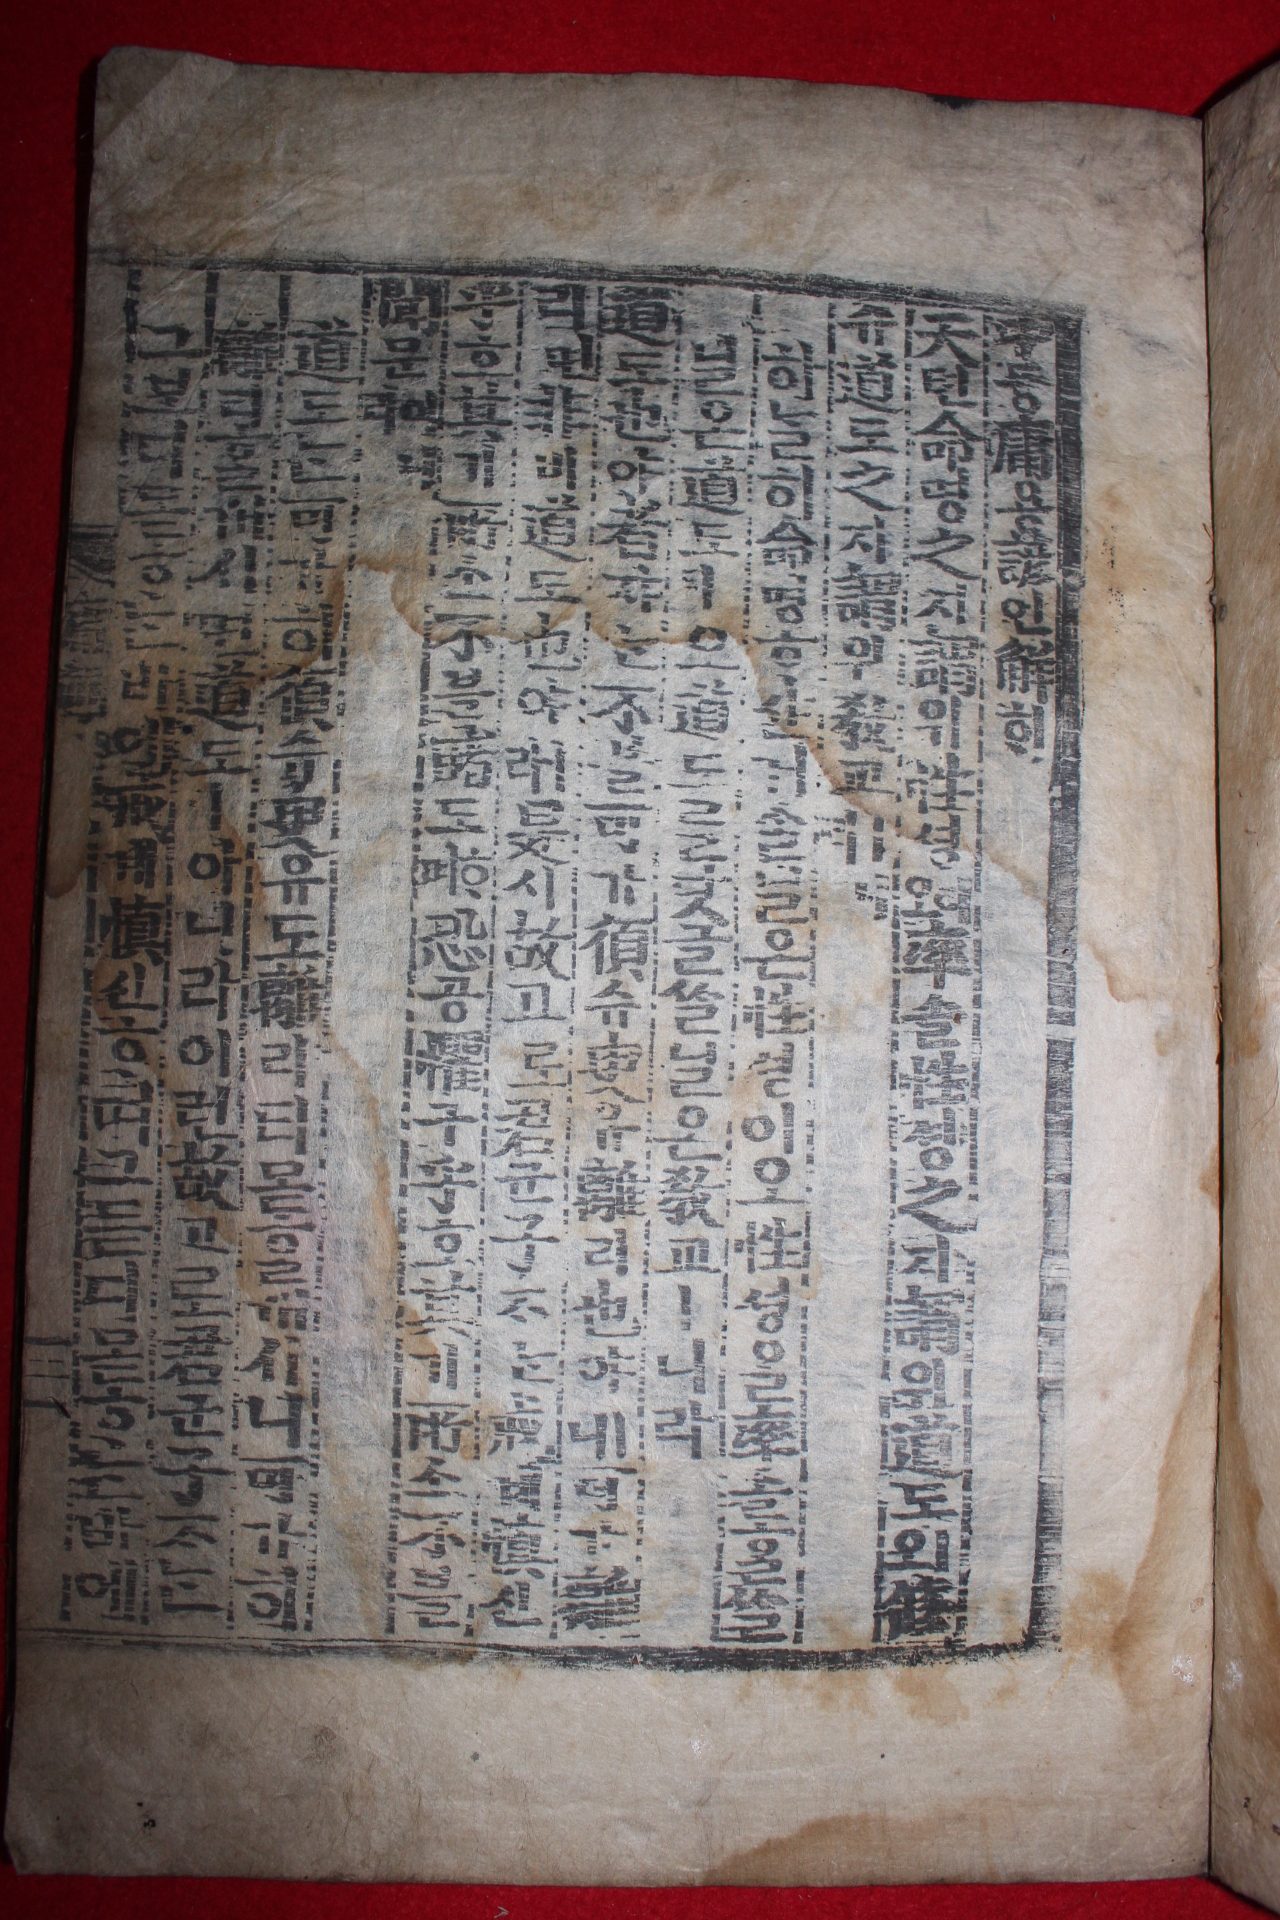 中듕庸용諺언解ᄒᆡ
天텬命명之지謂위性셩이오率솔性셩之지謂위道도ㅣ오脩
슈道도之지謂위敎교ㅣ니라
하ᄂᆞᆯ히命명ᄒᆞ샨거슬닐온性셩이오性셩을率솔홈을
닐온道도ㅣ오道도를닷글ᄉᆞᆯ닐온敎교ㅣ니라
道도也야者쟈ᄂᆞᆫ不블可가須슈臾유離리也야ㅣ니可가離
리면非비道도也야ㅣ라是시故고로君군子ᄌᆞᄂᆞᆫ戒계愼신
乎호其기所소不블睹도ᄒᆞ며恐공懼구乎호其기所소不블
聞문이니라
道도ᄂᆞᆫ可가히須슈臾유도離리티몯ᄒᆞᆯ꺼시니可가히
離리ᄒᆞᆯ꺼시면道도ㅣ아니라이런故고로君군子ᄌᆞᄂᆞᆫ
그보디몯ᄒᆞᄂᆞᆫ바애戒계愼신ᄒᆞ며